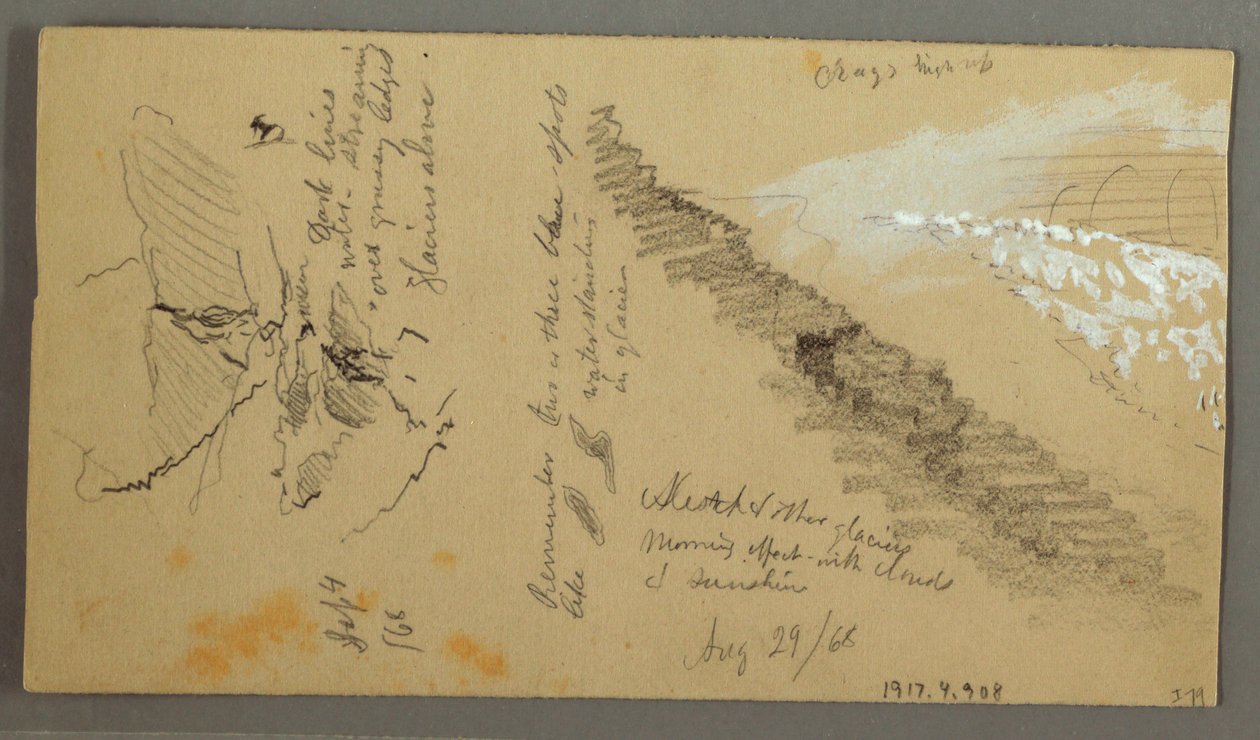 Crags high up
Dark lines
water streaming
over grassy ledges
glaciers above.
Remember this is these blue spots
like
water staining
in glacier
Sketch of other glaciers
Morning effect - with clouds
& sunshine
Aug 29/68
Sep 4
/68
1917.4.908
I 79